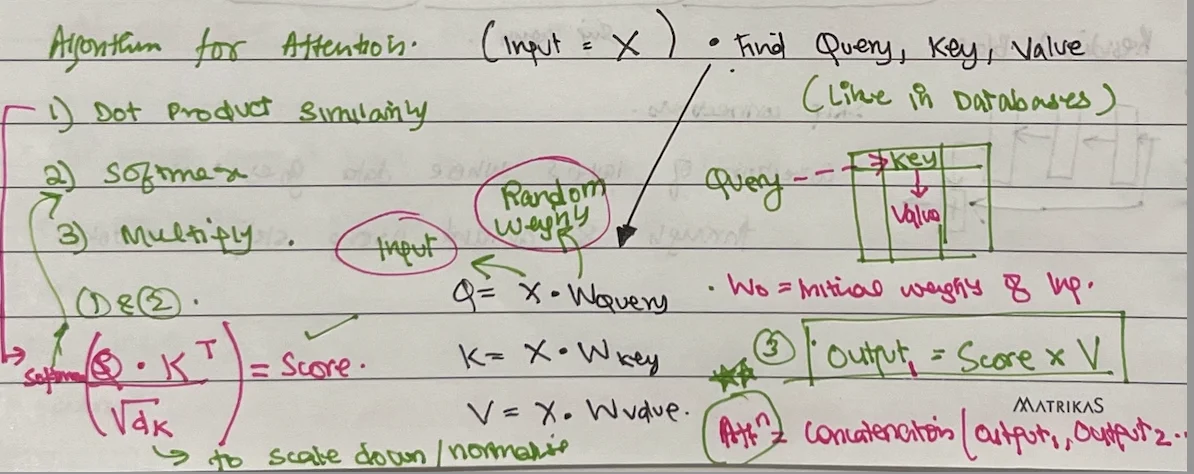 Algorithm for Attention. (Input = X) • Find Query, Key, Value
(Like in Databases)
1) Dot Product Similarity
2) Softmax
3) Multiply.
① & ②.
Softmax(Q · K^T / √dK) = Score.
↳ to scale down/normalise
Input
Random
weights
Q = X · Wquery
K = X · Wkey
V = X · Wvalue.
Query - - → Key
Value
· Wo = Initial weights & Inp.
③ Output₁ = Score x V
MATRIKAS
Attⁿ = Concatenation (Output₁, Output₂..